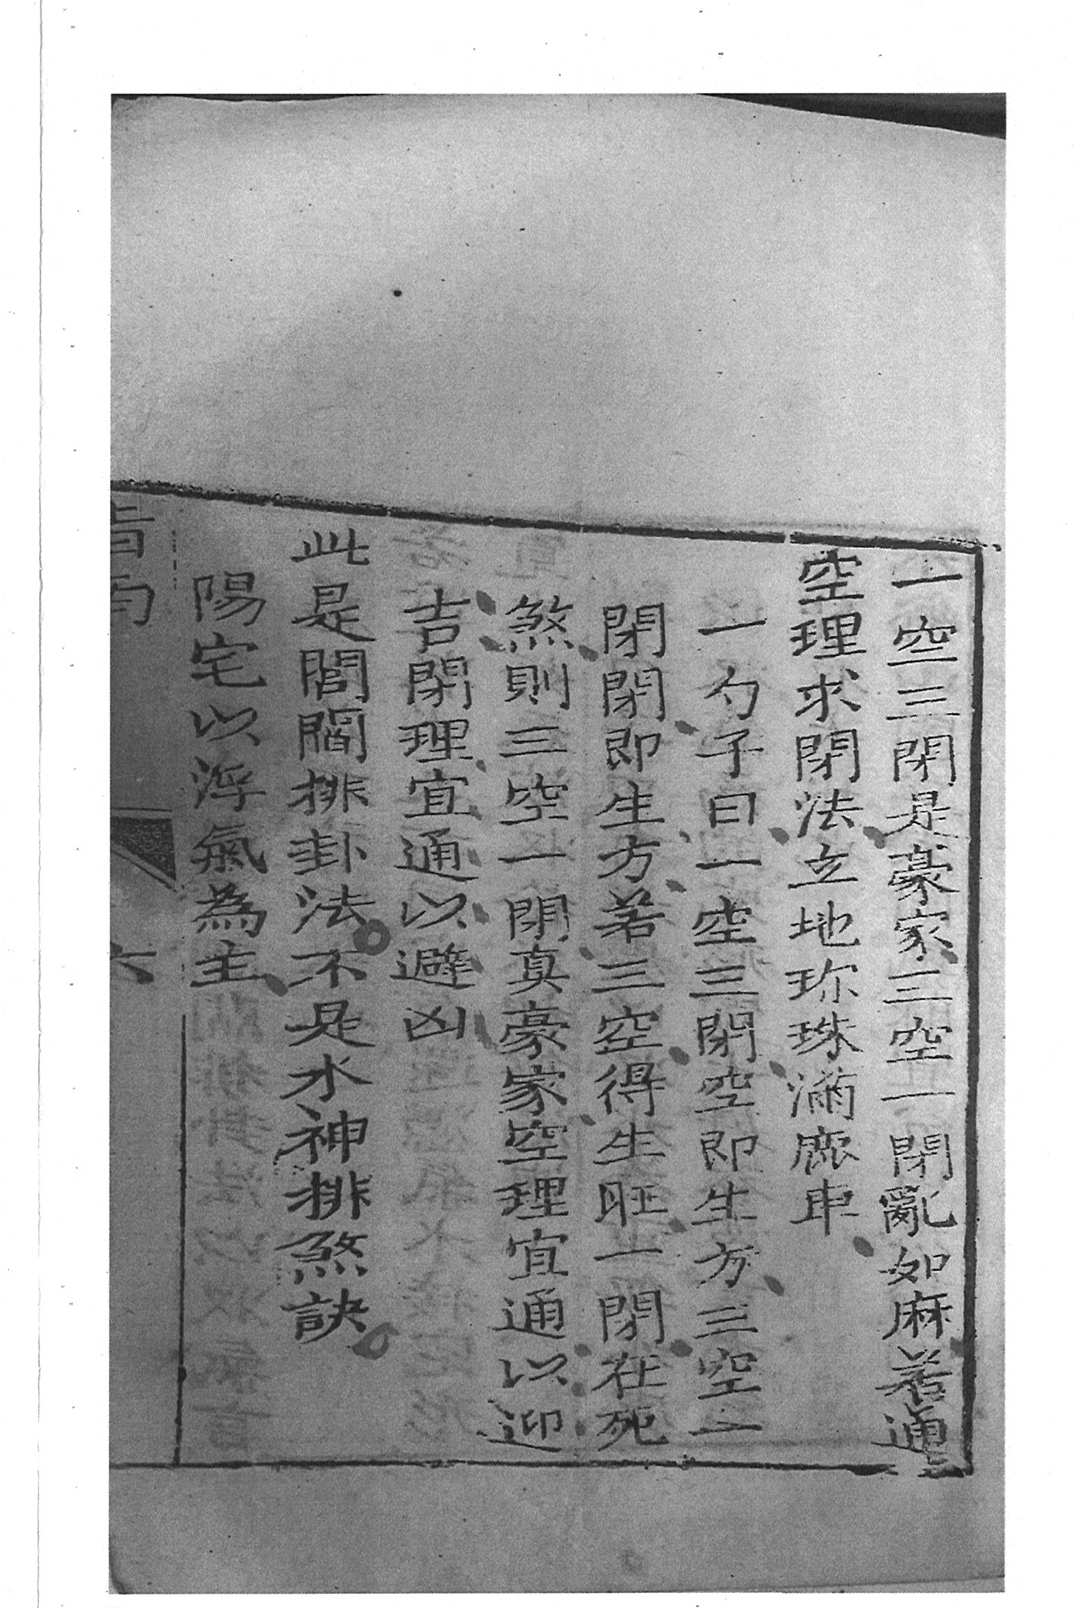 一空三閉是豪家三空一閉亂如麻若通
空理求閉法立地珎珠滿廐車
一勺子曰一空三閉空即生方三空一
閉閉即生方若三空得生旺一閉在死
煞則三空一閉真豪家空理宜通以迎
吉閉理宜通以避凶
此是閭閻排卦法不是水神排煞訣
陽宅以浮氣為主
指南
六